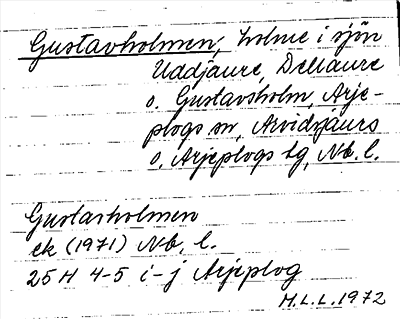 Gustavholmen, holme i sjön
Uddjaure, Dellaure
o. Gustavsholm, Arje-
plogs sn, Arvidsjaurs
o. Arjeplogs tg, Nb. l.
Gustavholmen
ek (1971) Nb. l.
25H 4-5 i-j Arjeplog
H.L.L. 1972